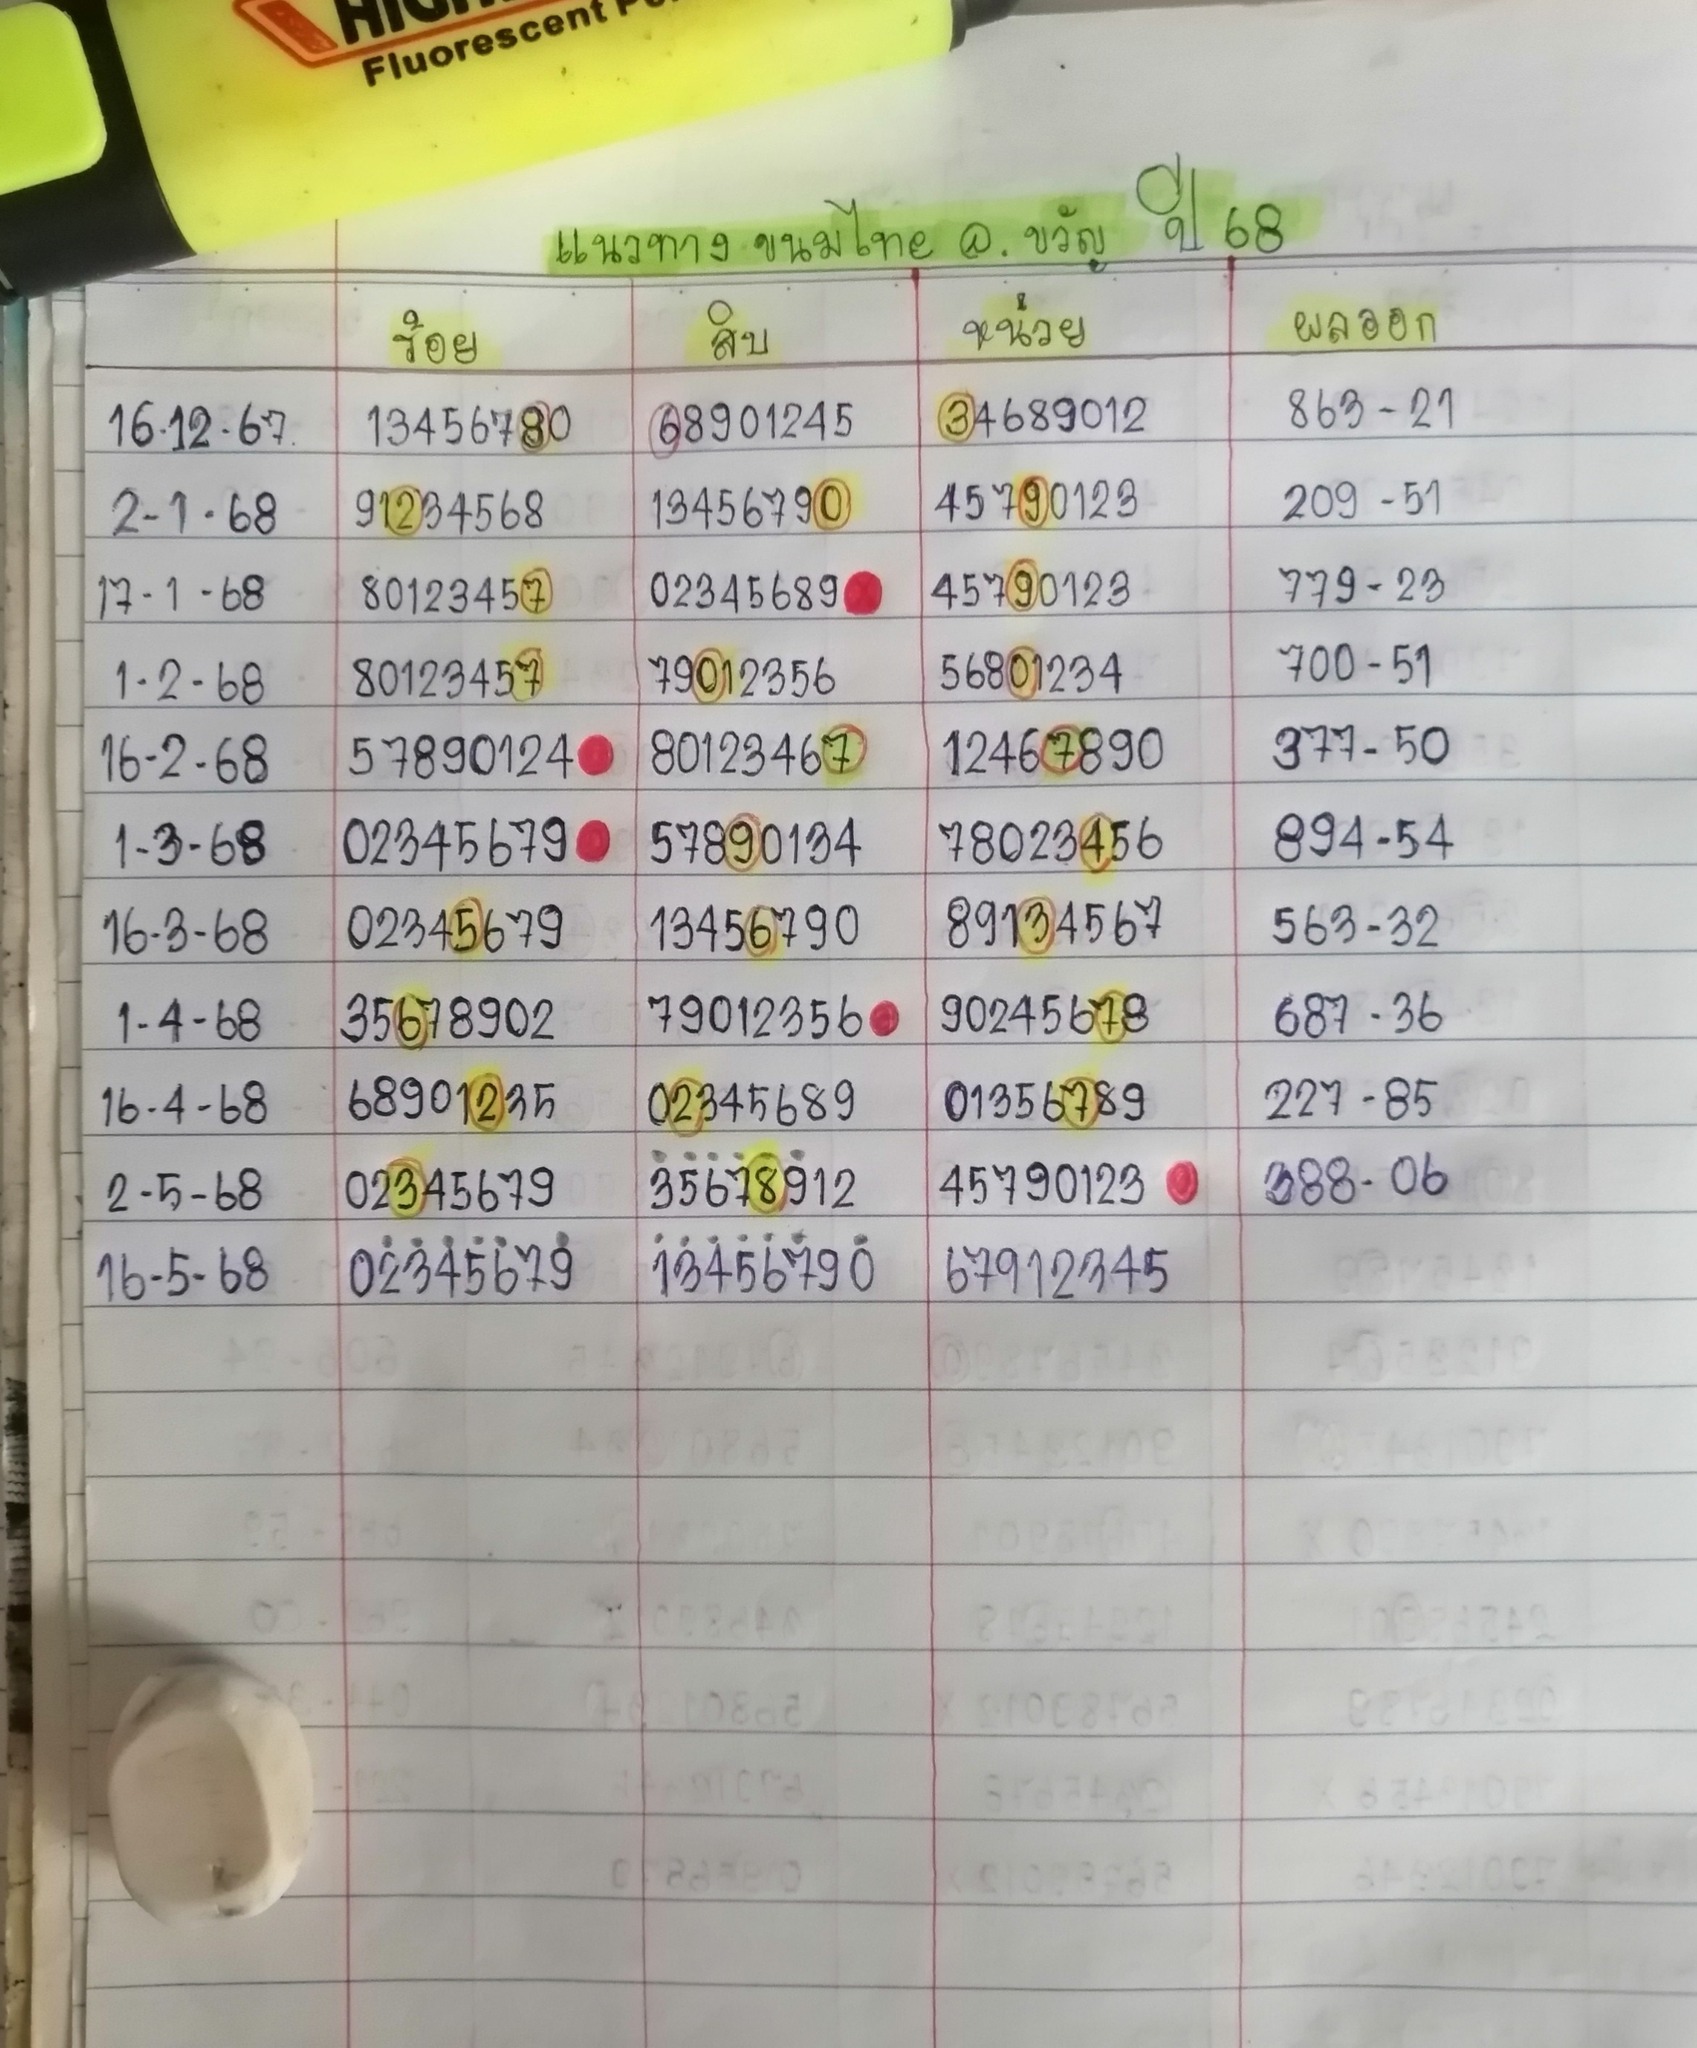 Fluorescent
แนวทาง ขนมไทย อ. ขวัญ ปี 68
ร้อย สิบ หน่วย ผลออก
16.12.67 13456780 68901245 34689012 863-21
2-1-68 91234568 13456790 45790123 209-51
17-1-68 80123457 02345689 45790123 779-23
1-2-68 80123457 79012356 56801234 700-51
16-2-68 57890124 80123467 12467890 377-50
1-3-68 02345679 57890134 78023456 894-54
16-3-68 02345679 13456790 89134567 563-32
1-4-68 35678902 79012356 90245678 687-36
16-4-68 68901235 02345689 01356789 227-85
2-5-68 02345679 35678912 45790123 388-06
16-5-68 02345679 13456790 67912345